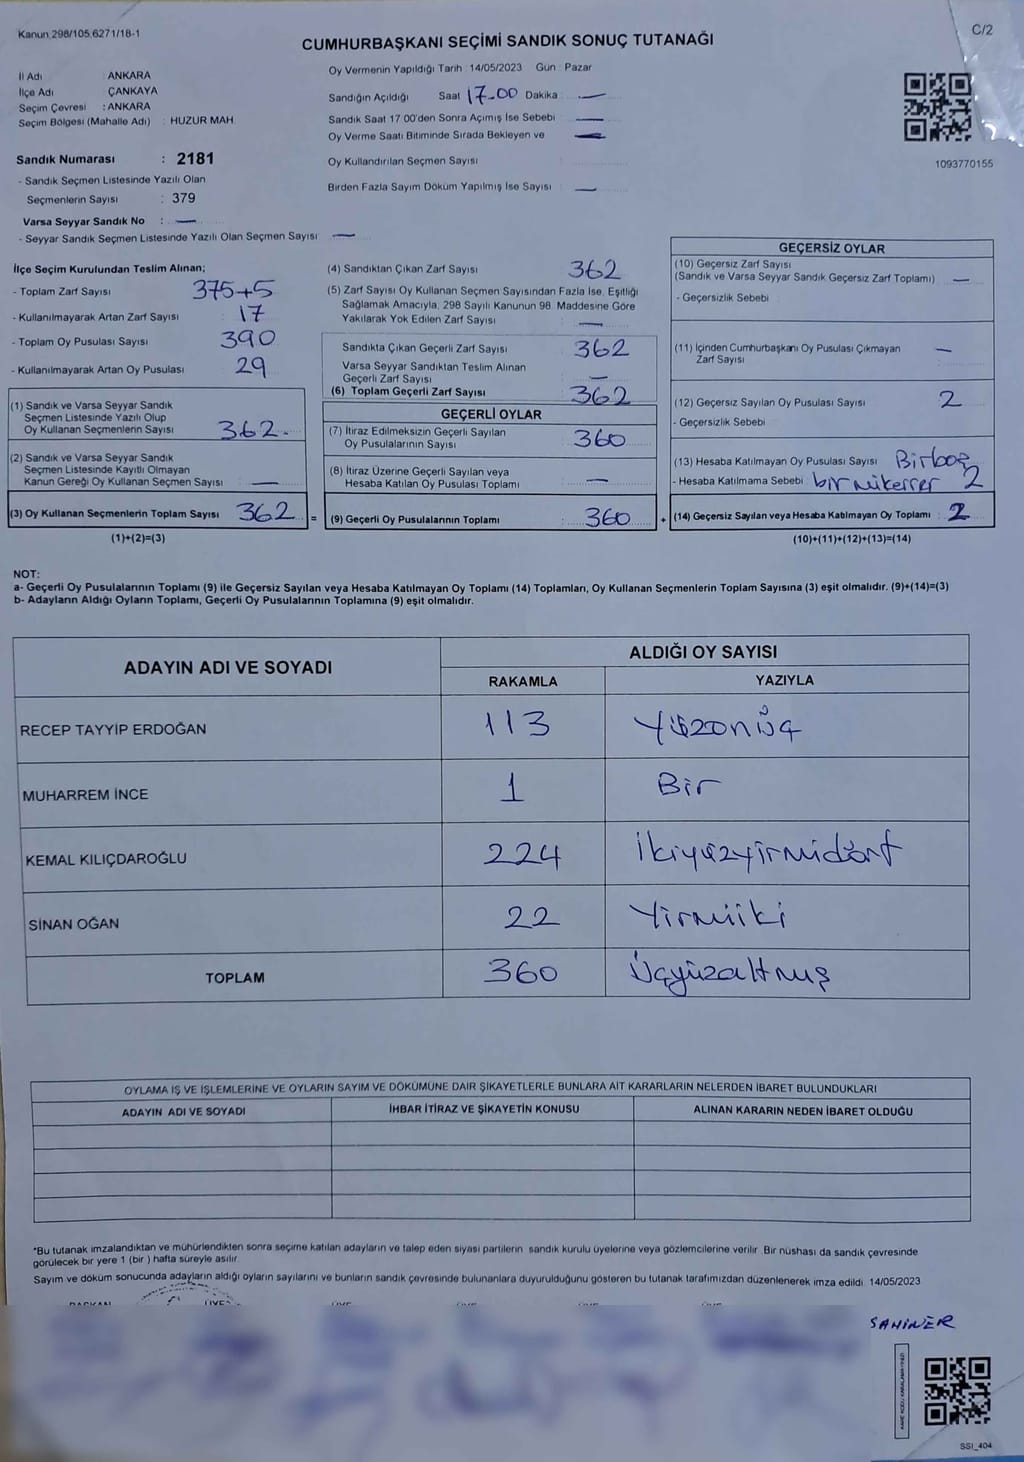 Kanun 298/105,6271/18-1
C/2
CUMHURBAŞKANI SEÇİMİ SANDIK SONUÇ TUTANAĞI
İl Adı : ANKARA
İlçe Adı : ÇANKAYA
Seçim Çevresi : ANKARA
Seçim Bölgesi (Mahalle Adı) : HUZUR MAH.
Sandık Numarası : 2181
- Sandık Seçmen Listesinde Yazılı Olan
Seçmenlerin Sayısı : 379
Varsa Seyyar Sandık No : —
- Seyyar Sandık Seçmen Listesinde Yazılı Olan Seçmen Sayısı —
Oy Vermenin Yapıldığı Tarih : 14/05/2023 Gün : Pazar
Sandığın Açıldığı Saat 17-00 Dakika : —
Sandık Saat 17.00'den Sonra Açımış İse Sebebi —
Oy Verme Saati Bitiminde Sırada Bekleyen ve —
Oy Kullandırılan Seçmen Sayısı :
Birden Fazla Sayım Döküm Yapılmış İse Sayısı : —
1093770155
İlçe Seçim Kurulundan Teslim Alınan;
- Toplam Zarf Sayısı 375+5
- Kullanılmayarak Artan Zarf Sayısı : 17
- Toplam Oy Pusulası Sayısı 390
- Kullanılmayarak Artan Oy Pusulası 29
(1) Sandık ve Varsa Seyyar Sandık
Seçmen Listesinde Yazılı Olup
Oy Kullanan Seçmenlerin Sayısı 362.
(2) Sandık ve Varsa Seyyar Sandık
Seçmen Listesinde Kayıtlı Olmayan
Kanun Gereği Oy Kullanan Seçmen Sayısı : —
(3) Oy Kullanan Seçmenlerin Toplam Sayısı 362 =
(1)+(2)=(3)
(4) Sandıktan Çıkan Zarf Sayısı : 362
(5) Zarf Sayısı Oy Kullanan Seçmen Sayısından Fazla İse, Eşitliği
Sağlamak Amacıyla, 298 Sayılı Kanunun 98. Maddesine Göre
Yakılarak Yok Edilen Zarf Sayısı : —
Sandıkta Çıkan Geçerli Zarf Sayısı : 362
Varsa Seyyar Sandıktan Teslim Alınan
Geçerli Zarf Sayısı : —
(6) Toplam Geçerli Zarf Sayısı : 362
GEÇERLİ OYLAR
(7) İtiraz Edilmeksizin Geçerli Sayılan
Oy Pusulalarının Sayısı : 360
(8) İtiraz Üzerine Geçerli Sayılan veya
Hesaba Katılan Oy Pusulası Toplamı : —
(9) Geçerli Oy Pusulalarının Toplamı : 360 +
GEÇERSİZ OYLAR
(10) Geçersiz Zarf Sayısı
(Sandık ve Varsa Seyyar Sandık Geçersiz Zarf Toplamı) : —
- Geçersizlik Sebebi
(11) İçinden Cumhurbaşkanı Oy Pusulası Çıkmayan
Zarf Sayısı : —
(12) Geçersiz Sayılan Oy Pusulası Sayısı : 2
- Geçersizlik Sebebi
(13) Hesaba Katılmayan Oy Pusulası Sayısı : Bir boş
- Hesaba Katılmama Sebebi bir mükerrer 2
(14) Geçersiz Sayılan veya Hesaba Katılmayan Oy Toplamı : 2
(10)+(11)+(12)+(13)=(14)
NOT:
a- Geçerli Oy Pusulalarının Toplamı (9) ile Geçersiz Sayılan veya Hesaba Katılmayan Oy Toplamı (14) Toplamları, Oy Kullanan Seçmenlerin Toplam Sayısına (3) eşit olmalıdır. (9)+(14)=(3)
b- Adayların Aldığı Oyların Toplamı, Geçerli Oy Pusulalarının Toplamına (9) eşit olmalıdır.
ADAYIN ADI VE SOYADI
ALDIĞI OY SAYISI
RAKAMLA YAZIYLA
RECEP TAYYİP ERDOĞAN 113 Yüzonüç
MUHARREM İNCE 1 Bir
KEMAL KILIÇDAROĞLU 224 İkiyüzyirmidört
SİNAN OĞAN 22 Yirmiiki
TOPLAM 360 Üçyüzaltmış
OYLAMA İŞ VE İŞLEMLERİNE VE OYLARIN SAYIM VE DÖKÜMÜNE DAİR ŞİKAYETLERLE BUNLARA AİT KARARLARIN NELERDEN İBARET BULUNDUKLARI
ADAYIN ADI VE SOYADI İHBAR İTİRAZ VE ŞİKAYETİN KONUSU ALINAN KARARIN NEDEN İBARET OLDUĞU
*Bu tutanak imzalandıktan ve mühürlendikten sonra seçime katılan adayların ve talep eden siyasi partilerin sandık kurulu üyelerine veya gözlemcilerine verilir. Bir nüshası da sandık çevresinde
görülecek bir yere 1 (bir ) hafta süreyle asılır.
Sayım ve döküm sonucunda adayların aldığı oyların sayılarını ve bunların sandık çevresinde bulunanlara duyurulduğunu gösteren bu tutanak tarafımızdan düzenlenerek imza edildi. 14/05/2023
BAŞKAN ÜYE ÜYE ÜYE ÜYE ÜYE
SAHİNER
SSI_404